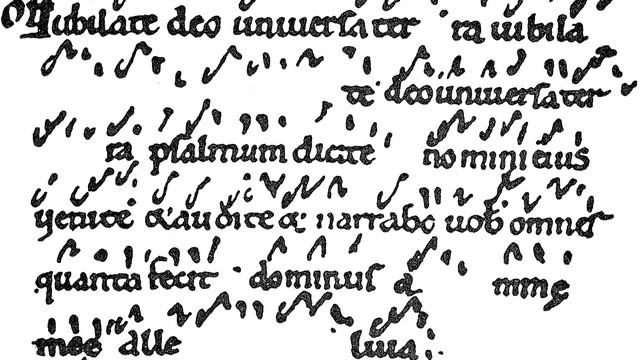 off Iubilate deo uniuersa ter ra iubila
te deo uniuersa ter
ra psalmum dicite nomini eius
uenite & audite & narrabo uob omnes
quanta fecit dominus a nimę
meę alle luia.